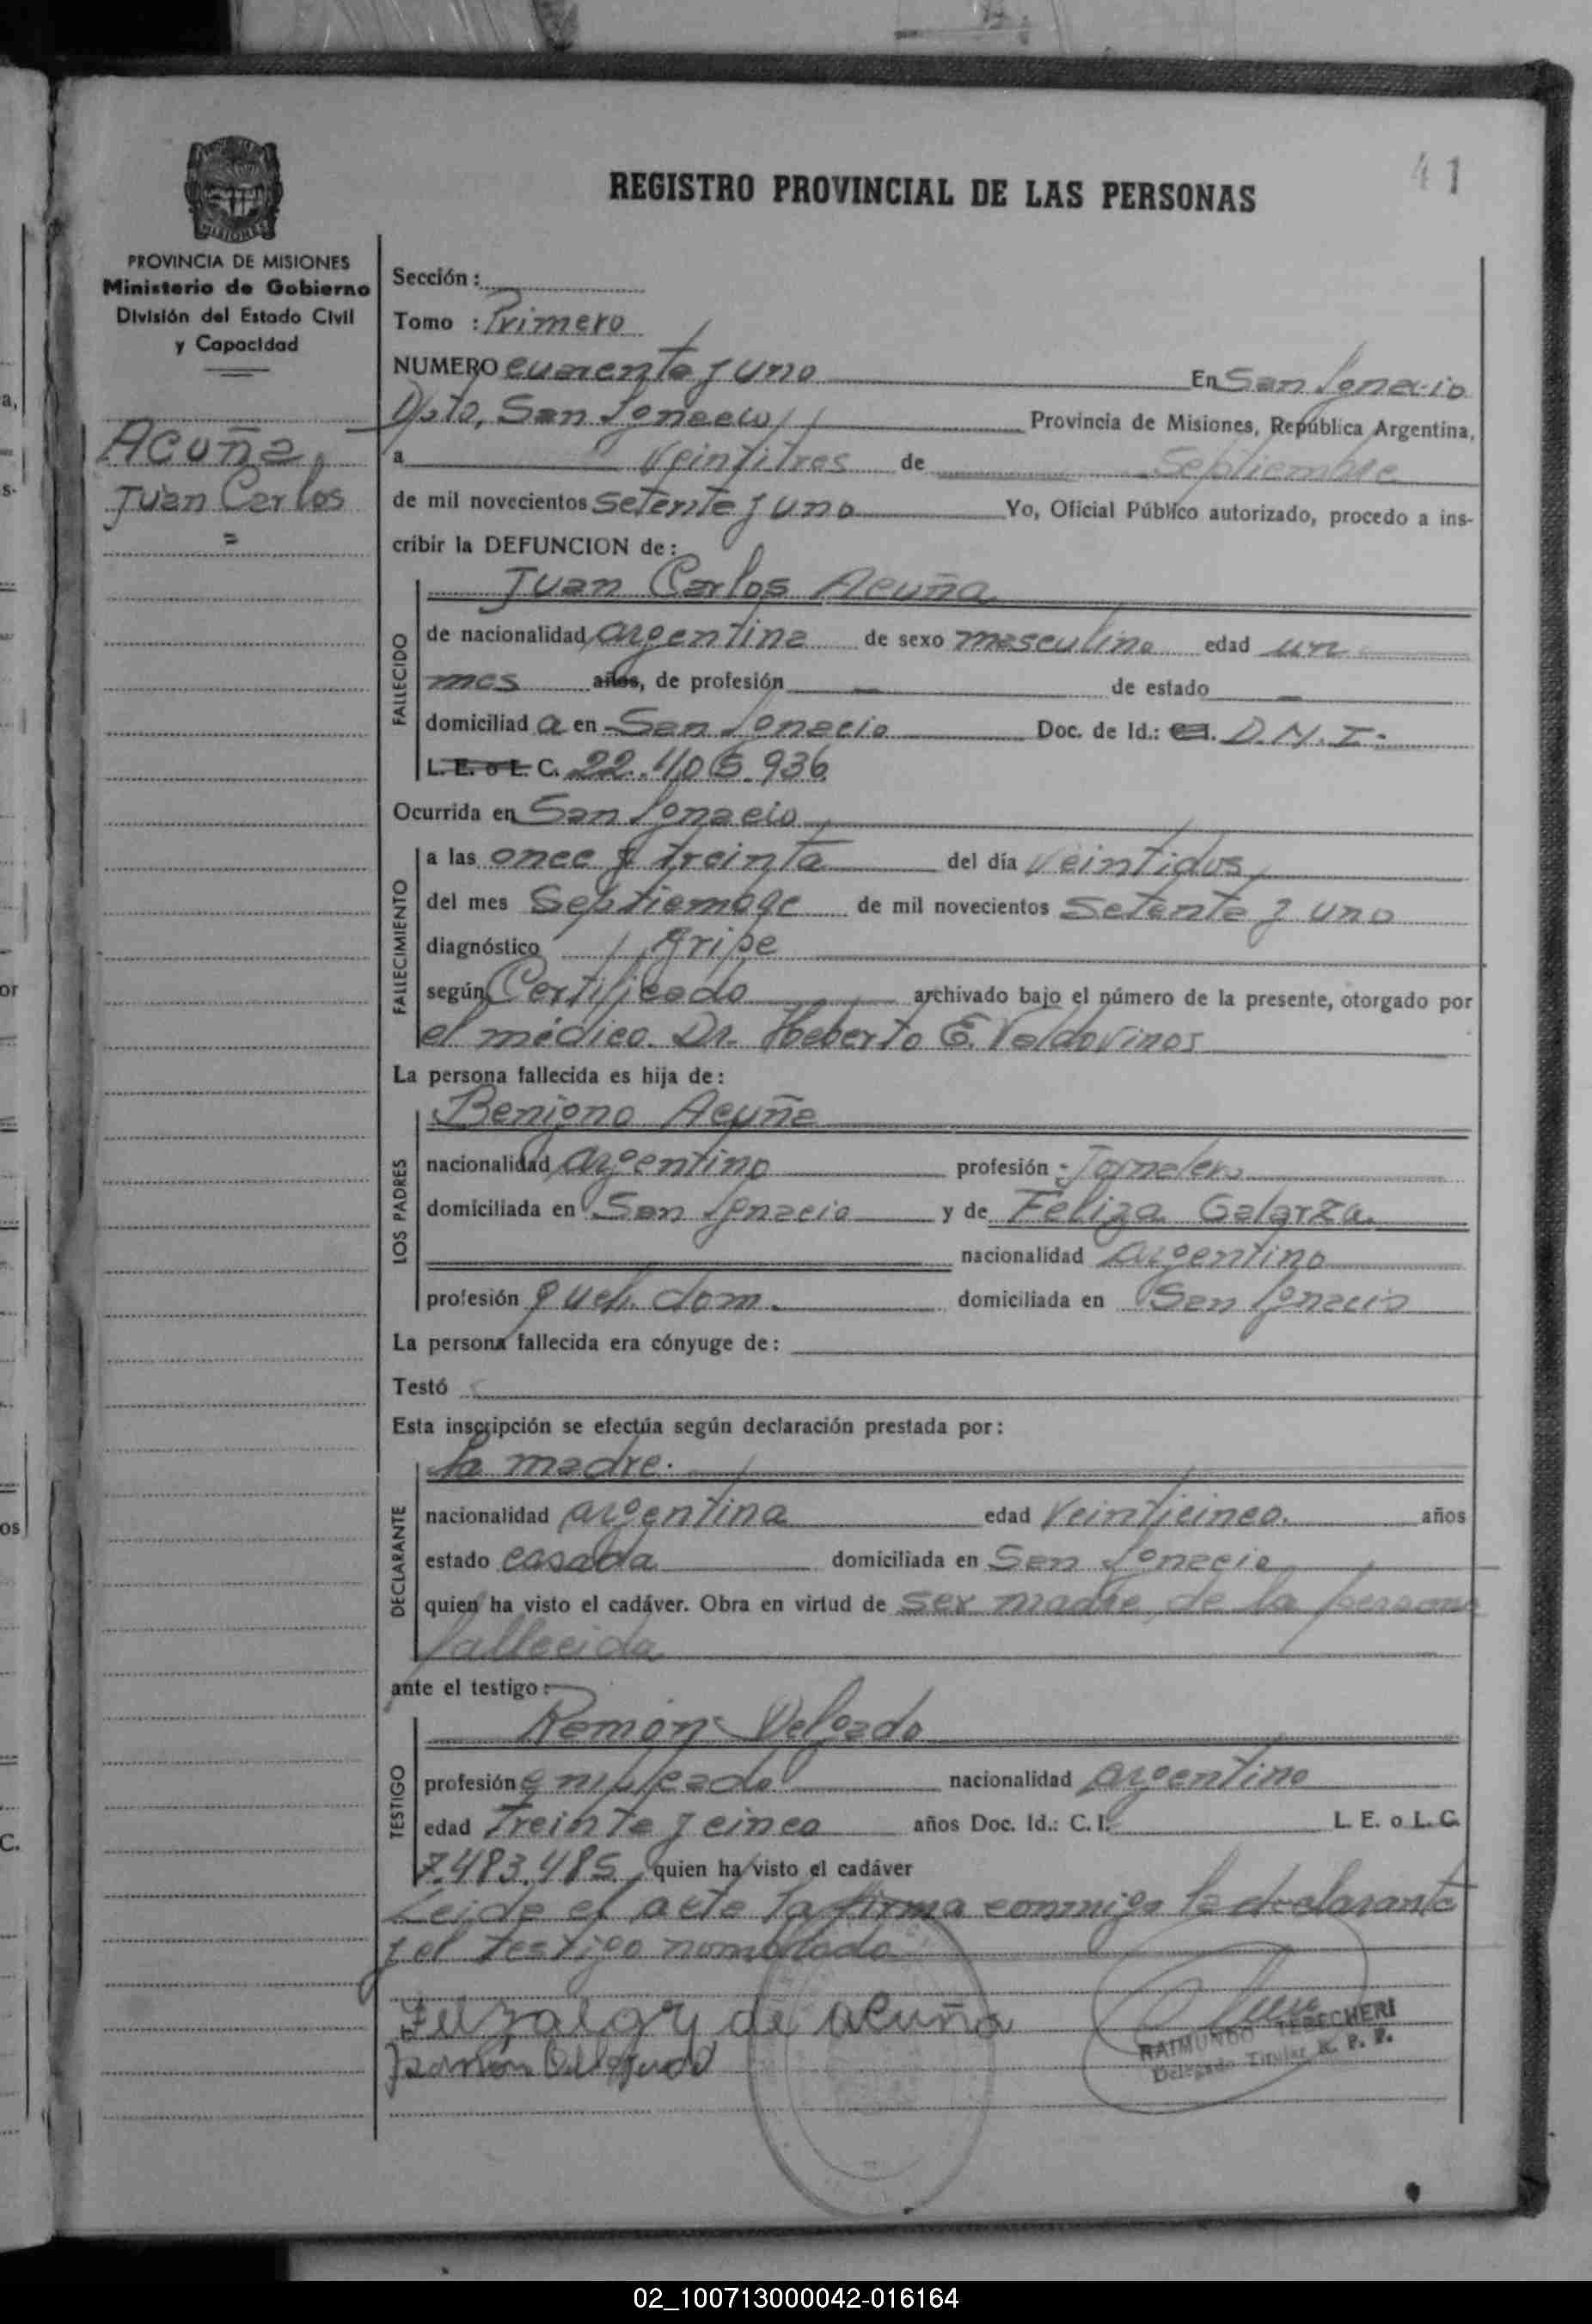 41
REGISTRO PROVINCIAL DE LAS PERSONAS
MISIONES
PROVINCIA DE MISIONES
Ministerio de Gobierno
División del Estado Civil
y Capacidad
Acuña,
Juan Carlos
=
Sección:
Tomo : Primero
NUMERO cuarenta y uno En San Ignacio
Dpto, San Ignacio Provincia de Misiones, República Argentina,
a veintitres de Septiembre
de mil novecientos Setenta y uno Yo, Oficial Público autorizado, procedo a ins-
cribir la DEFUNCION de:
Juan Carlos Acuña
FALLECIDO
de nacionalidad argentina de sexo masculino edad un
mes años, de profesión — de estado —
domiciliad a en San Ignacio Doc. de Id.: D.N.I.
L. E. o L. C. 22.405.936
Ocurrida en San Ignacio
FALLECIMIENTO
a las once y treinta del día veintidos
del mes Septiembre de mil novecientos Setenta y uno
diagnóstico gripe
según Certificado archivado bajo el número de la presente, otorgado por
el médico Dr. Heberto E. Valdovinos
La persona fallecida es hija de:
LOS PADRES
Benigno Acuña
nacionalidad argentino profesión Jornalero
domiciliada en San Ignacio y de Feliza Galarza
nacionalidad argentino
profesión queh. dom. domiciliada en San Ignacio
La persona fallecida era cónyuge de:
Testó
Esta inscripción se efectúa según declaración prestada por:
DECLARANTE
la madre.
nacionalidad argentina edad Veinticinco. años
estado casada domiciliada en San Ignacio
quien ha visto el cadáver. Obra en virtud de ser madre de la persona
fallecida
ante el testigo:
TESTIGO
Ramón Delgado
profesión empleado nacionalidad argentino
edad Treinta y cinco años Doc. Id.: C. I. L. E. o L. C.
7.483.485 quien ha visto el cadáver
Leida el acta la firma conmigo la declarante
y el testigo nombrado
de acuña
Ramon Delgado
RAIMUNDO TEBECHERI
Delegado Titular R. P. P.
02_100713000042-016164